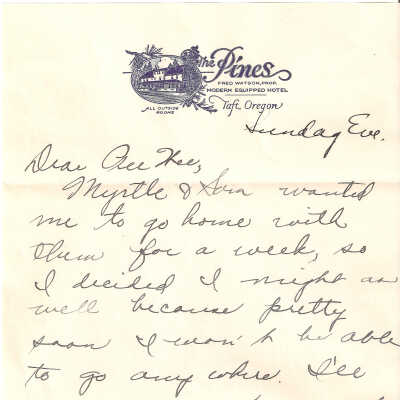 The Pines
FRED WATSON, PROP.
MODERN EQUIPPED HOTEL
ALL OUTSIDE
ROOMS
Taft, Oregon
Sunday Eve.
Dear Pee Wee,
Myrtle & wanted
me to go home with
them for a week, so
I decided I might as
well because pretty
soon I won't be able
to go anywhere. I'll